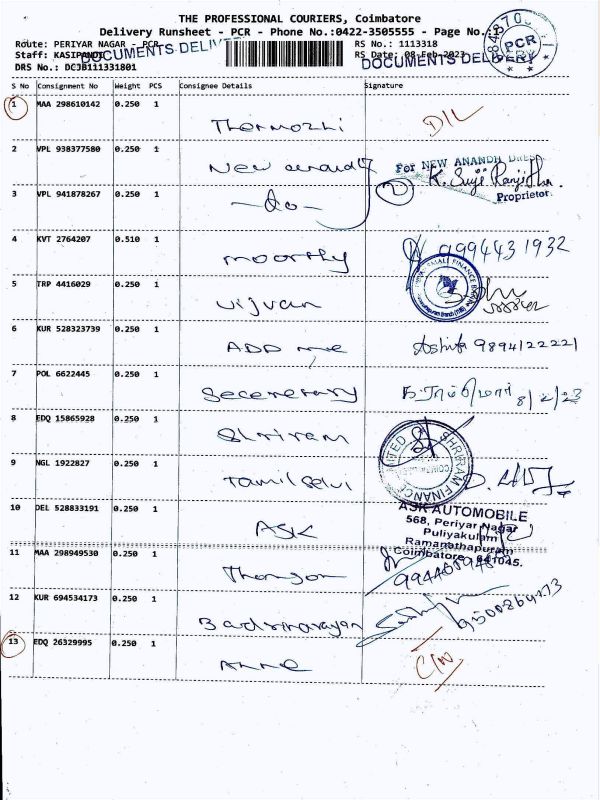 THE PROFESSIONAL COURIERS, Coimbatore
Delivery Runsheet - PCR - Phone No.:0422-3505555 - Page No.:
Route: PERIYAR NAGAR - PCR
RS No.: 1113318
Staff: KASIPANDI
RS Date: 08-Feb-2023
DRS No.: DCJB111331801
DOCUMENTS DELIV
DOCUMENTS DELIVERY
PCR
S No Consignment No Weight PCS Consignee Details Signature
1 MAA 298610142 0.250 1 Thermozhi D/L
2 VPL 938377580 0.250 1 New
For NEW ANANDH DRESS
K. Suji Ranjitha.
Proprietor.
3 VPL 941878267 0.250 1 -do-
4 KVT 2764207 0.510 1 moorthy 9994431932
5 TRP 4416029 0.250 1
SMALL FINANCE BANK
6 KUR 528323739 0.250 1 ADD me 9894122221
7 POL 6622445 0.250 1 Seceretary 8/2/23
8 EDQ 15865928 0.250 1 Shriram
SHRIRAM FINANCE LIMITED
9 NGL 1922827 0.250 1 Tamil Selvi
10 DEL 528833191 0.250 1 ASK
ASK AUTOMOBILE
568, Periyar Nagar
Puliyakulam
Ramanathapuram
Coimbatore - 641045.
11 MAA 298949530 0.250 1
12 KUR 694534173 0.250 1 Badrinarayan
13 EDQ 26329995 0.250 1 Anne